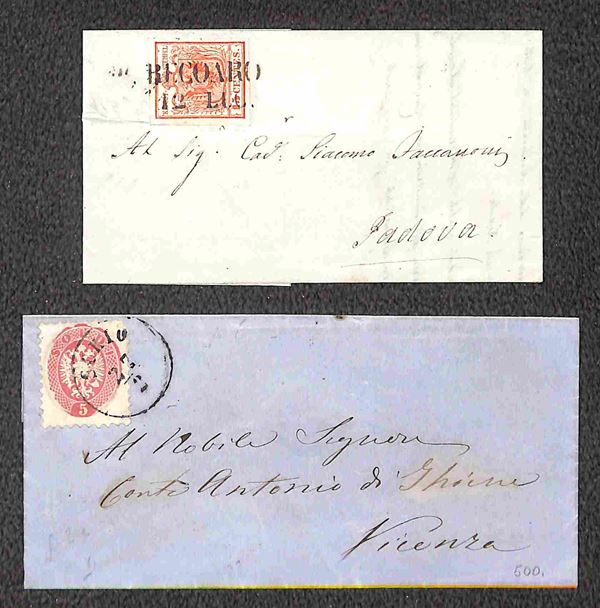 RECOARO
12 LUG.
CENTES.
Al Sig. Cav. Giacomo
Padova.
SCHIO
5
Al Nobile Signore
Conte Antonio di Thiene
Vicenza
500.